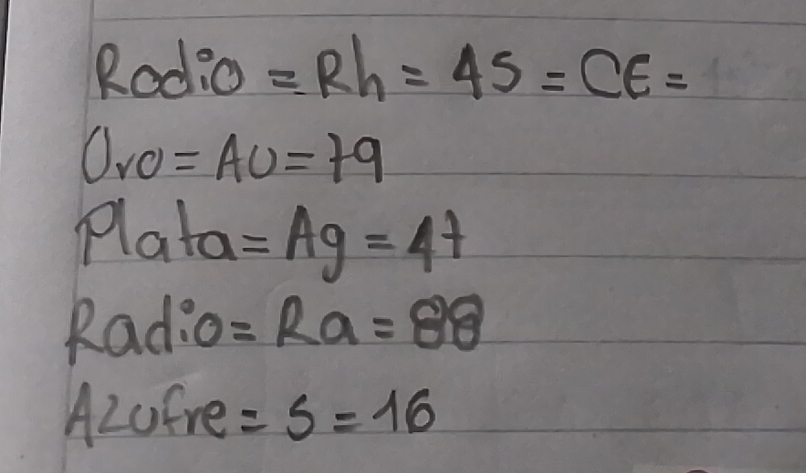 Rodio = Rh = 45 = CE =
Oro = AU = 79
Plata = Ag = 47
Radio = Ra = 88
Azufre = S = 16